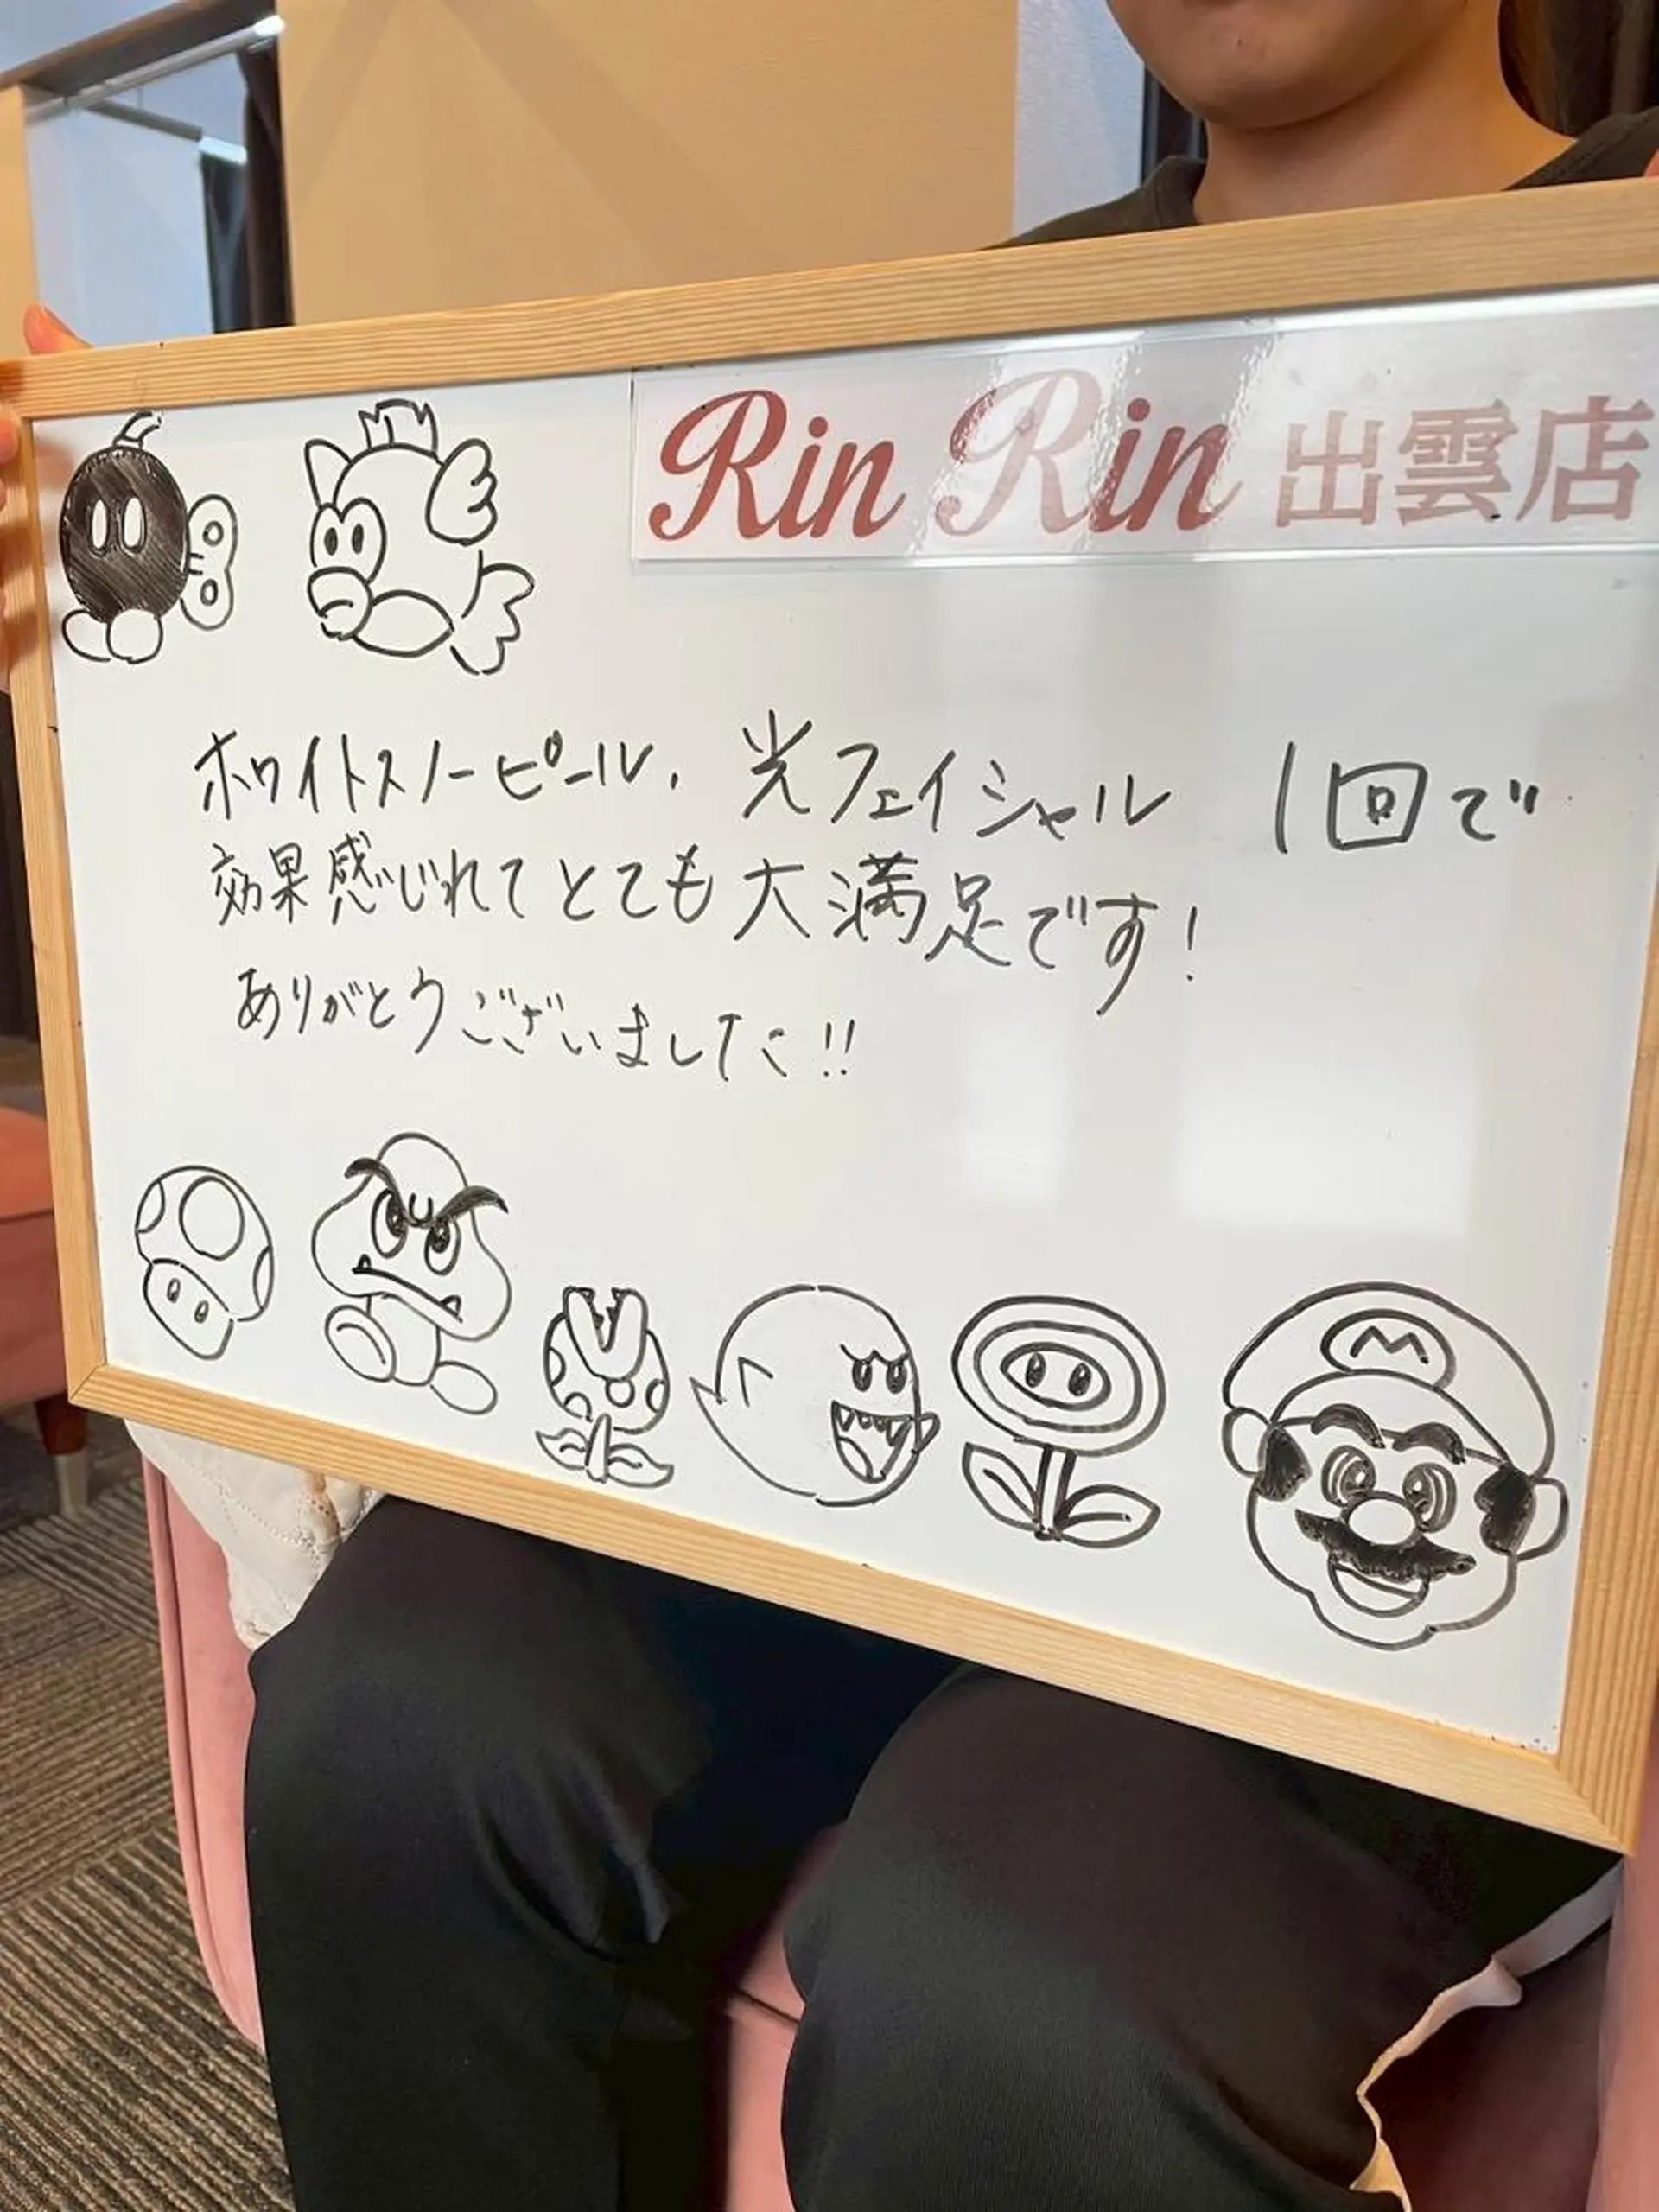 Rin Rin 出雲店
ホワイトスノーピール、光フェイシャル 1回で
効果感じれてとても大満足です!
ありがとうございました!!
M